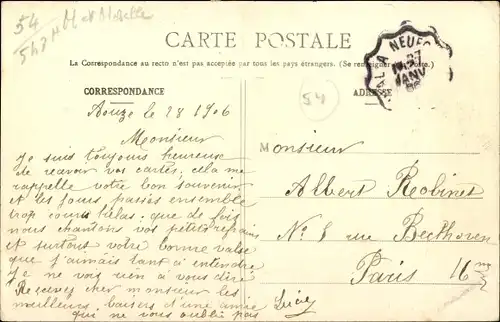 54
54 et Moselle
CARTE POSTALE
La Correspondance au recto n'est pas acceptée par tous les pays étrangers. (Se renseigner à la Poste.)
CORRESPONDANCE
ADRESSE
A NEUFC
27
JANV
54
le 28 1906
Monsieur
Je suis toujours heureuse
de recevoir vos cartes, cela me
rappelle votre bon souvenir
et les jours passés ensemble
trop courts hélas: que de fois
nous chantons vos petits refrains
et surtout votre bonne valse
que j'aimais tant à entendre
Je ne vois rien à vous dire
Recevez cher monsieur les
meilleurs baisers d'une amie
qui ne vous oublie pas
Lucie
Monsieur
Albert Robinet
No 8 rue Beethoven
Paris 16me